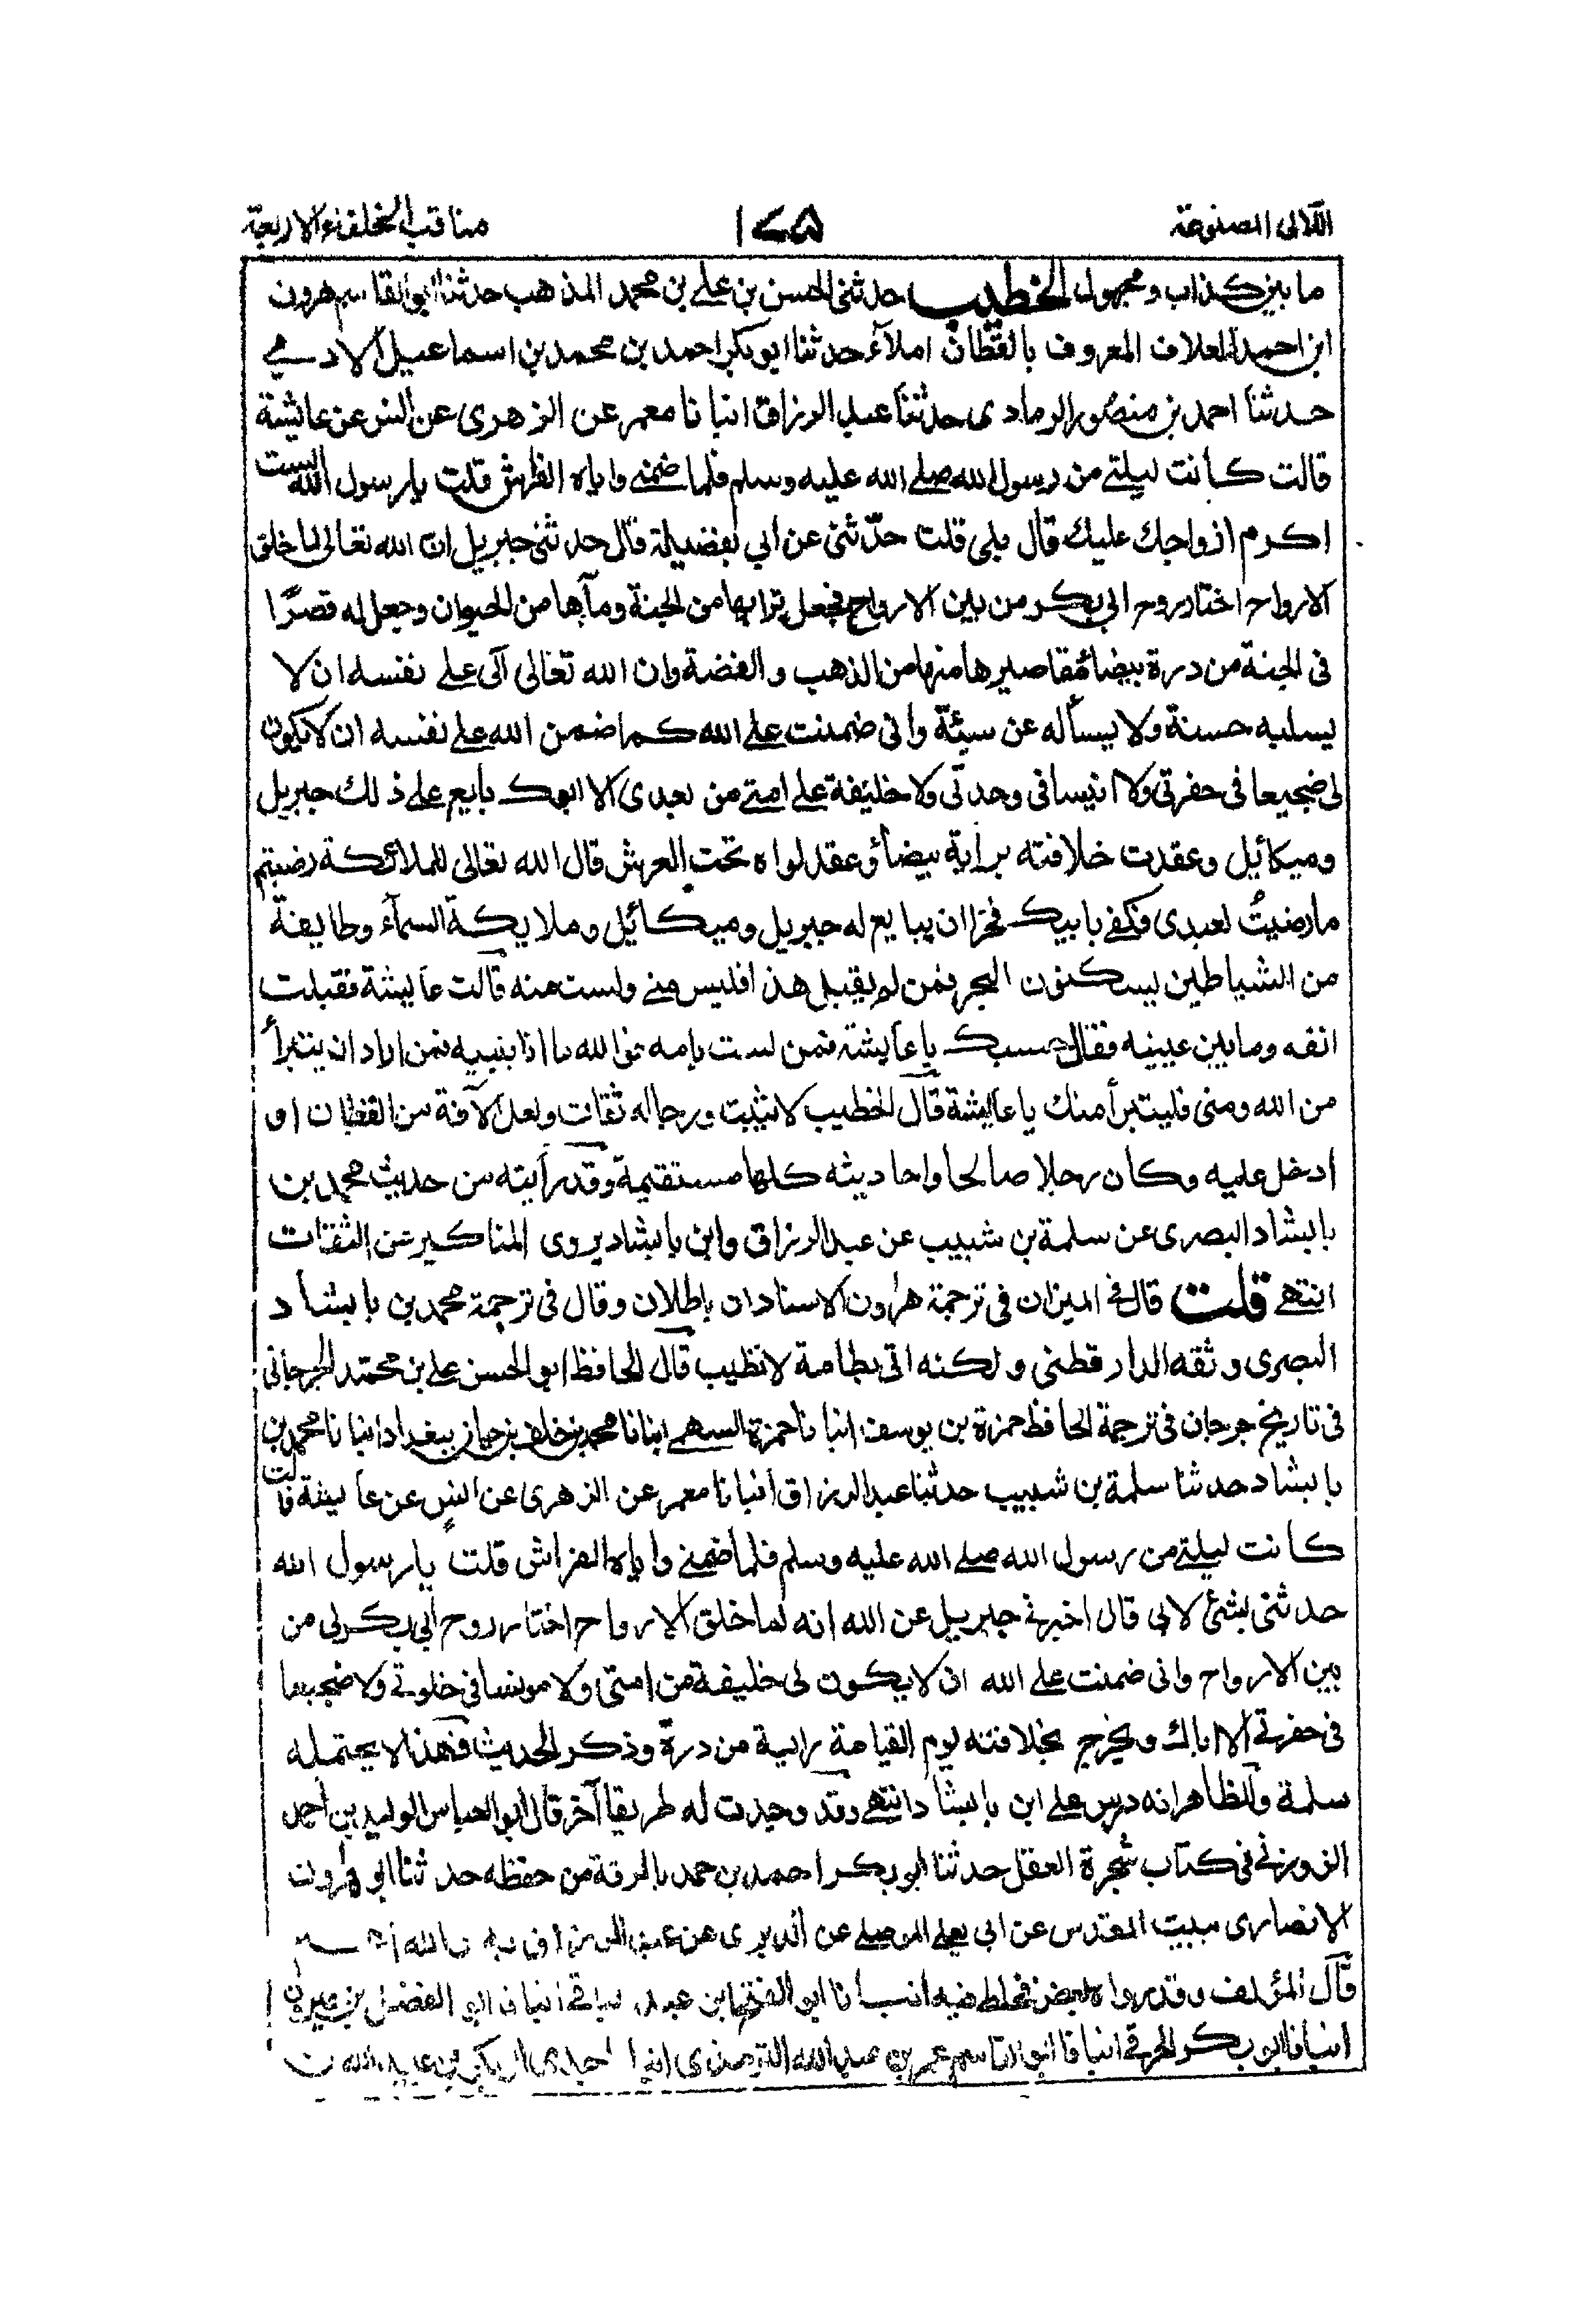 اللآلى المصنوعة ١٧٥ مناقب الخلفاء الاربعة
ما بين كذاب ومجهول الخطيب حدثنى الحسن بن على بن محمد المذهب حدثنا ابو القاسم هرون
ابن احمد العلاف المعروف بالقطان املاء حدثنا ابو بكر احمد بن محمد بن اسماعيل الادمي
حدثنا احمد بن منصور الرمادى حدثنا عبد الرزاق انبانا معمر عن الزهرى عن انس عن عايشة
قالت كانت ليلتى من رسول الله صلى الله عليه وسلم فلما ضمنى واياه الفراش قلت يا رسول الله الست
اكرم ازواجك عليك قال بلى قلت حدّثنى عن ابي بفضيلة قال حدثنى جبريل ان الله تعالى لما خلق
الارواح اختار روح ابي بكر من بين الارواح فجعل ترابها من الجنة ومآءها من الحيوان وجعل له قصرًا
فى الجنة من درة بيضاء مقاصيرها منها من الذهب والفضة وان الله تعالى آلى على نفسه ان لا
يسلبه حسنة ولا يسأله عن سيئة وانى ضمنت على الله كما ضمن الله على نفسه ان لا يكون
لى ضجيعا فى حفرتى ولا انيسا فى وحدتى ولا خليفة على امتى من بعدى الا ابوك بايع على ذلك جبريل
وميكائيل وعقدت خلافته براية بيضاء وعقد لواه تحت العرش قال الله تعالى للملائكة رضيتم
ما رضيتُ لعبدى فكفى بابيك فخرا ان يبايع له جبريل وميكائيل وملايكة السمآء وطايفة
من الشياطين يسكنون البحر فمن لم يقبل هذا فليس منى ولست منه قالت عايشة فقبلت
انفه وما بين عينيه فقال حسبك يا عايشة فمن لست بامه فوالله ما انا بنبيه فمن اراد ان يتبرأ
من الله ومنى فليتبرأ منك يا عايشة قال الخطيب لا يثبت ورجاله ثقات ولعل الآفة من القطان او
ادخل عليه وكان رجلا صالحا واحاديثه كلها مستقيمة وقد رأيته من حديث محمد بن
بابشاد البصرى عن سلمة بن شبيب عن عبد الرزاق وابن بابشاد يروى المناكير عن الثقات
انتهى قلت قال فى الميزان فى ترجمة هرون الاسنادان باطلان وقال فى ترجمة محمد بن بابشاد
البصرى وثقه الدارقطنى ولكنه اتى بطامة لا تطيب قال الحافظ ابو الحسن على بن محمد الجرجانى
فى تاريخ جرجان فى ترجمة الحافظ حمزة بن يوسف انبانا حمزة السهمى انبانا محمد بن خلف بن جيان ببغداد انبانا محمد بن
بابشاد حدثنا سلمة بن شبيب حدثنا عبد الرزاق انبانا معمر عن الزهرى عن انس عن عايشة قالت
كانت ليلتى من رسول الله صلى الله عليه وسلم فلما ضمنى واياه الفراش قلت يا رسول الله
حدثنى بشئ لابى قال اخبرنى جبريل عن الله انه لما خلق الارواح اختار روح ابي بكر لى من
بين الارواح وانى ضمنت على الله ان لا يكون لى خليفة من امتى ولا مونسا فى خلوتى ولا ضجيعا
فى حفرتى الا اباك ويخرج بخلافته يوم القيامة راية من درة وذكر الحديث فهذا لا يحتمله
سلمة والظاهر انه درس على ابن بابشاد انتهى وقد وجدت له طريقا آخر قال ابو العباس الوليد بن احمد
الزوزنى فى كتاب شجرة العقل حدثنا ابو بكر احمد بن حمد بالرقة من حفظه حدثنا ابو هرون
الانصارى ببيت المقدس عن ابي يعلى الموصلى عن الدبرى عن عبد الرزاق به والله اعلم
قال المؤلف وقد رواه بعض فخلط فيه انبانا ابو الفتح ابن عبد الباقى انبانا ابو الفضل بن خيرون
انبانا ابو بكر البرقى انبانا ابو القاسم عمر بن عبد الله الترمذى